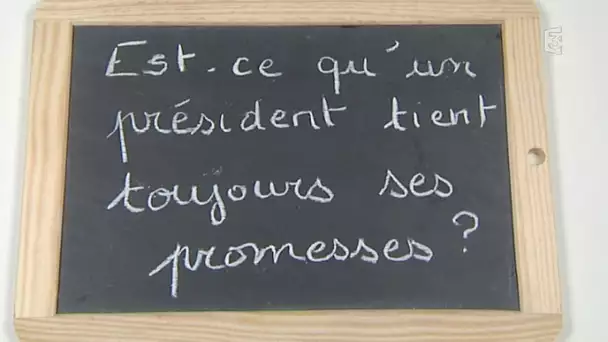 Est-ce qu'un
président tient
toujours ses
promesses ?